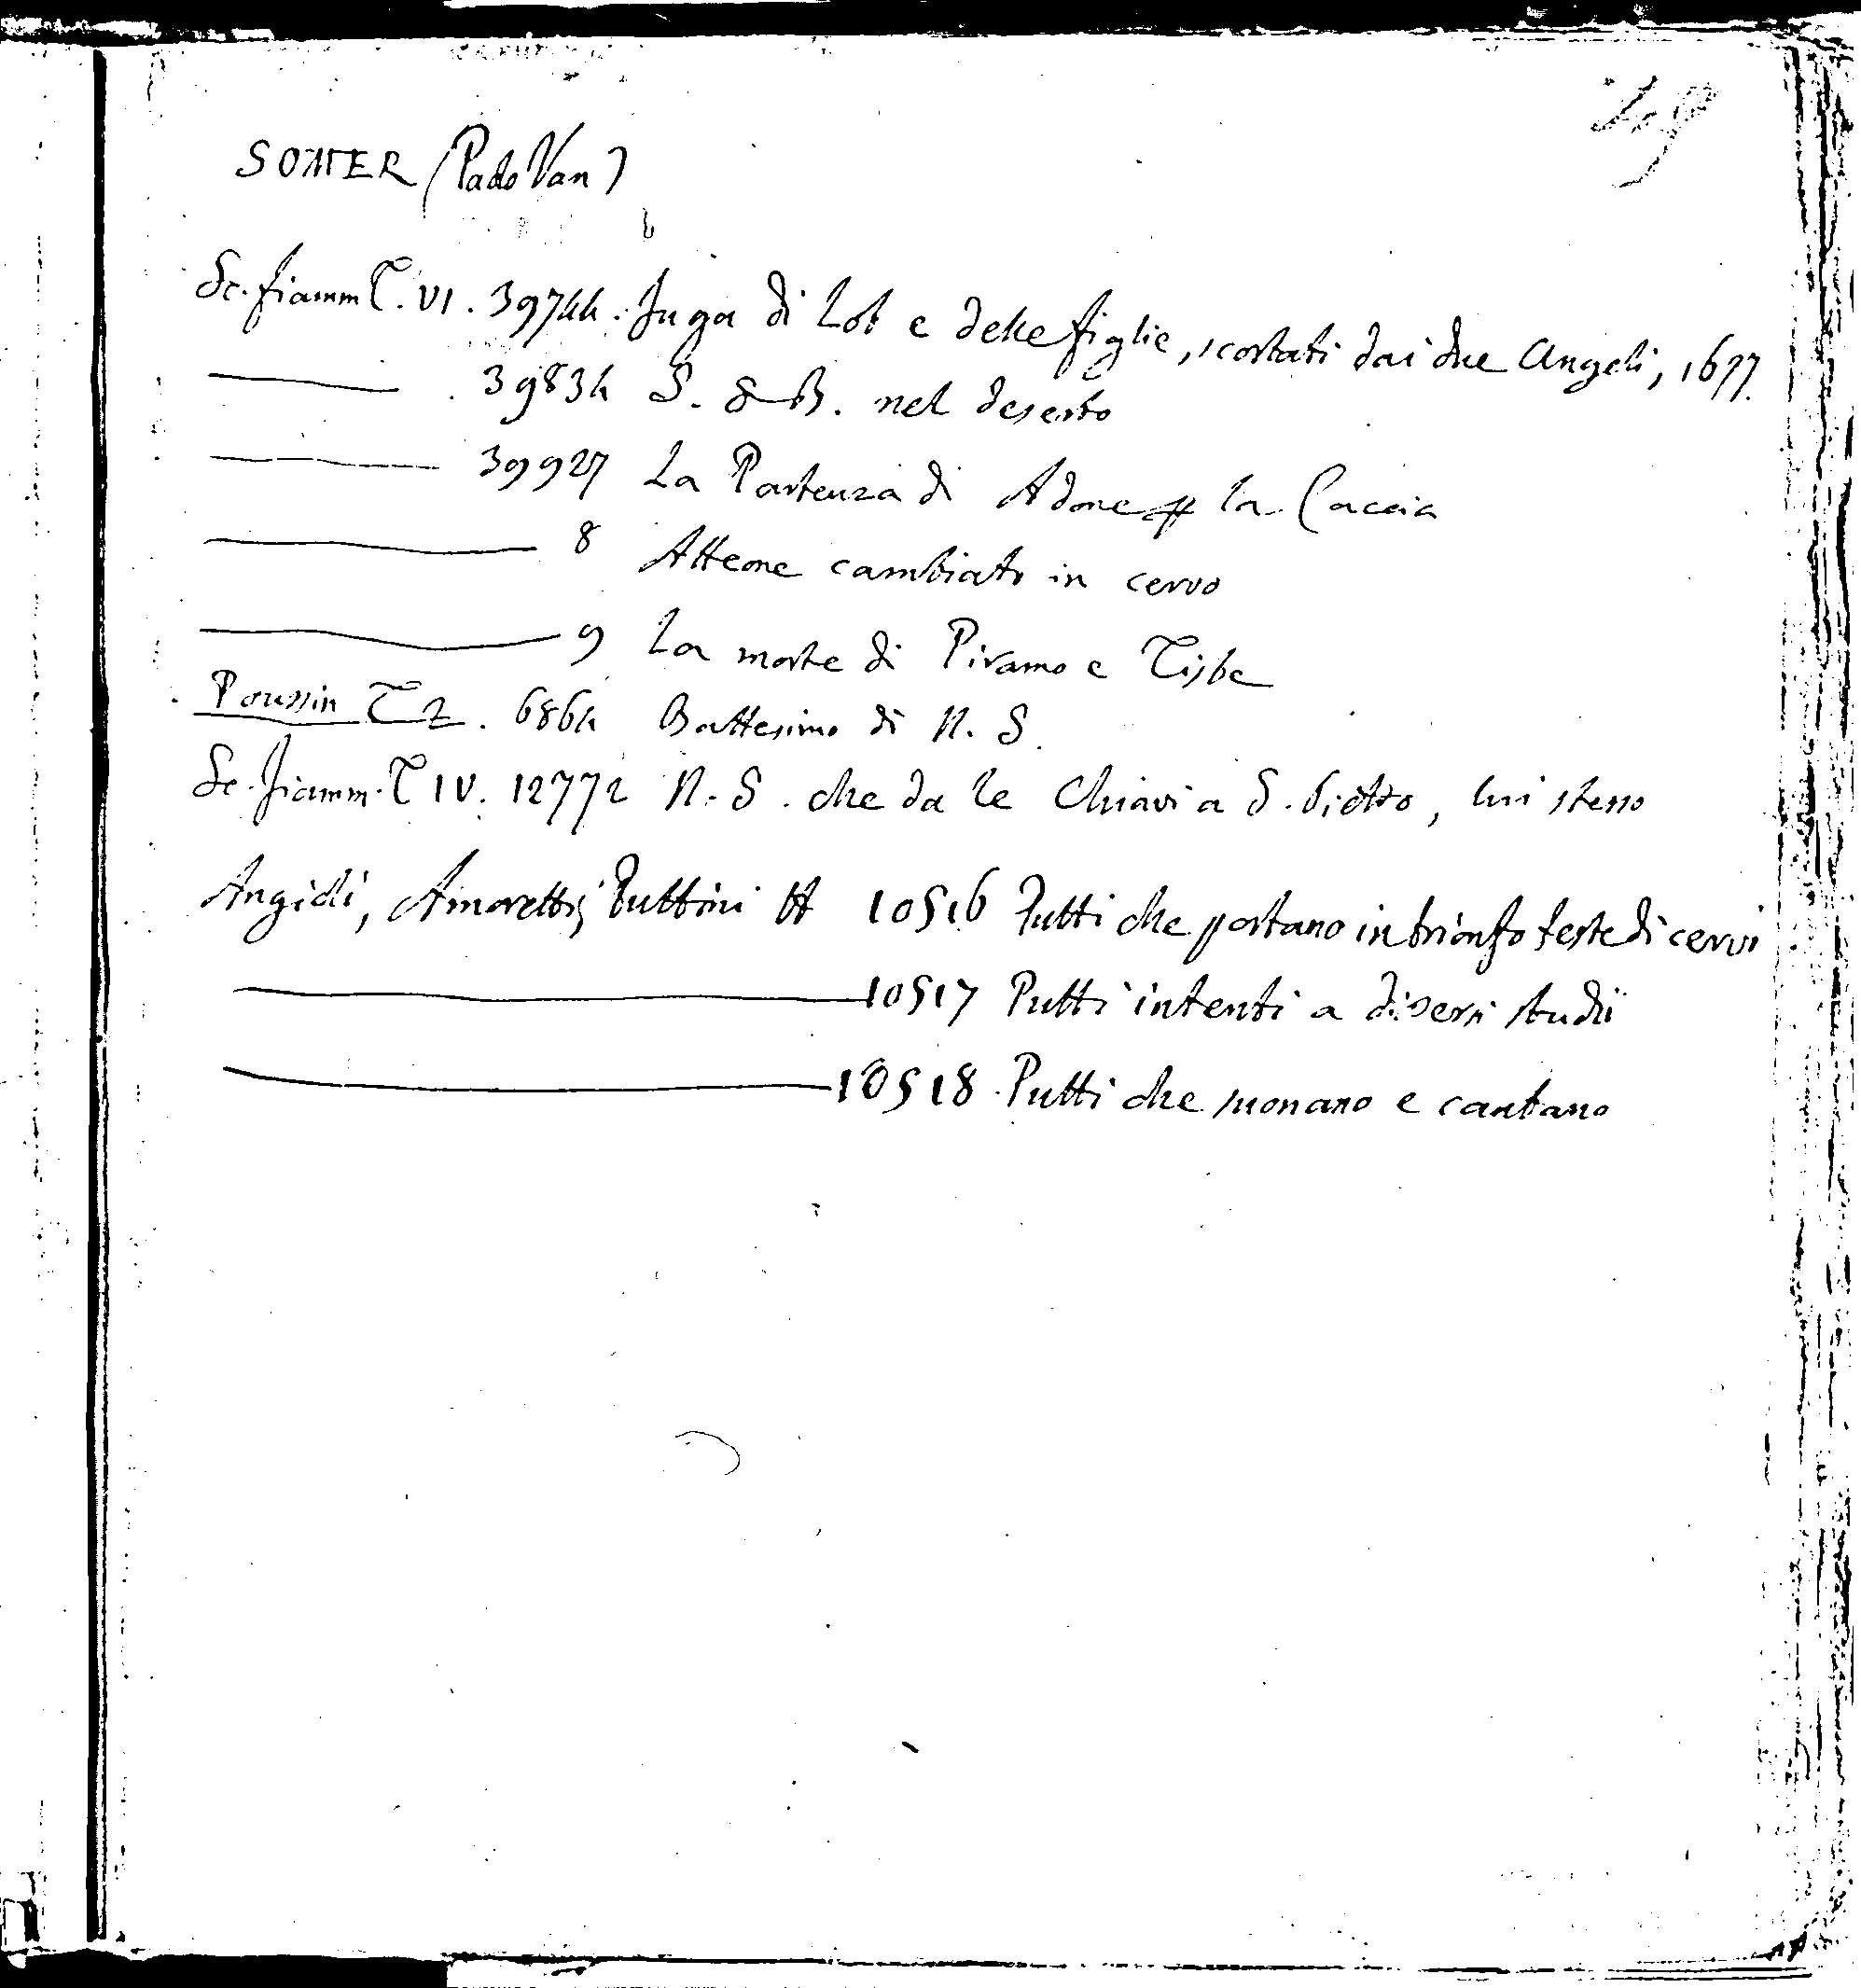 SOMER (Pado Van)
Sc. fiamm T. VI. 39744. Fuga di Lot e delle figlie, scortati dai due Angeli, 1677.
39834 S. G B. nel deserto
39927 La Partenza di Adone la Caccia
8 Atteone cambiato in cervo
9 La morte di Piramo e Tisbe
Poussin T 2. 6864 Battesimo di N. S.
Sc. fiamm. T IV. 12772 N. S. che da le Chiavi a S. Pietro, lui stesso
Angioli, Amoretti, Puttini 10516 Putti che portano in trionfo teste di cervi
10517 Putti intenti a diversi studii
10518 Putti che suonano e cantano